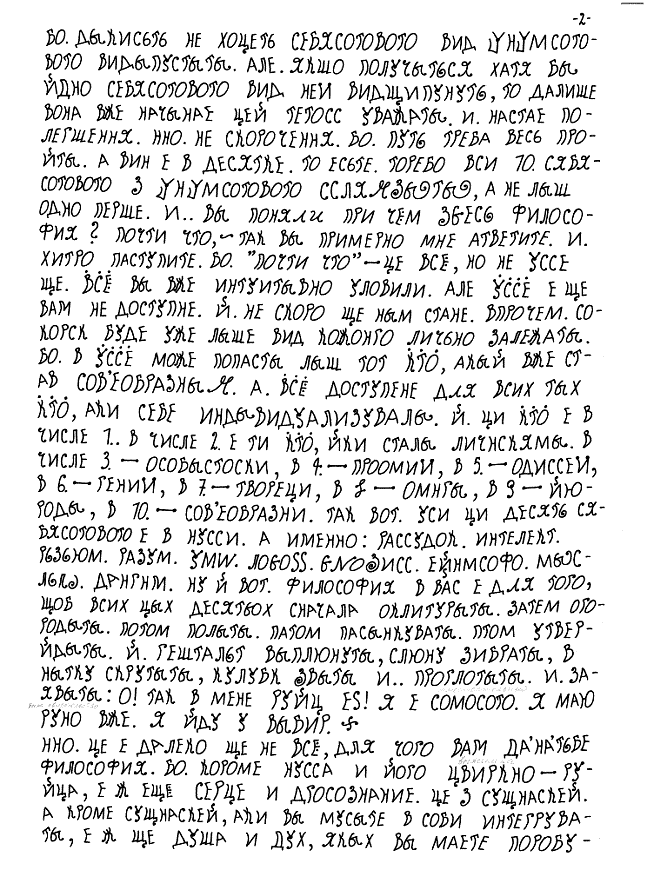 -2-
ВО. ДЫКИСЬТЬ НЕ ХОЦЕТЬ СЕБЯСОТОВОТО ВИД
ВОТО ВИДЫПУСТЫТЫ. АЛЕ. ЯКШО ПОЛУЧЫТЬСЯ ХАТЯ БЫ
ЙДНО СЕБЯСОТОВОТО ВИД НЕИ ВИДЩИПНУТЬ, ТО ДАЛИШЕ
ВОНА ВЖЕ НАЧЫНАЕ ЦЕЙ ТЕТОСС УВАЖАТЫ. И. НАСТАЕ ПО-
ЛЕГШЕННЯ. ННО. НЕ СКОРОЧЕННЯ. БО. ПУТЬ ТРЕБА ВЕСЬ ПРО-
ЙТЫ. А ВИН Е В ДЕСЯТКЕ. ТО ЕСЬТЕ. ТОРЕБО ВСИ 10. СЯБЯ-
СОТОВОТО З А НЕ ЛЫШ
ОДНО ПЕРШЕ. И.. ВЫ ПОНЯЛИ ПРИ ЧЁМ ЗЬЕСЬ ФИЛОСО-
ФИЯ? ПОЧТИ ЧТО,~ТАК ВЫ ПРИМЕРНО МНЕ АТВЕТИТЕ. И.
ХИТРО ПАСТУПИТЕ. БО. "ПОЧТИ ЧТО"—ЦЕ ВСЁ, НО НЕ УССЕ
ЩЕ. ВСЁ ВЫ ВЖЕ ИНТУИТЫВНО УЛОВИЛИ. АЛЕ УССЁ Е ЩЕ
ВАМ НЕ ДОСТУПНЕ. Й. НЕ СКОРО ЩЕ НЫМ СТАНЕ. ВПРОЧЕМ. СО-
КОРСК БУДЕ УЖЕ ЛЫШЕ ВИД КОЖОНГО ЛИЧЬНО ЗАЛЕЖАТЫ.
БО. В УССЁ МОЖЕ ПОПАСТЫ ЛЫШ ТОТ КТО, АКЫЙ ВЖЕ СТ-
АВ СОВ'ЕОБРАЗНЫМ. А. ВСЁ ДОСТУПЕНЕ ДЛЯ ВСИХ ТЫХ
КТО, АКИ СЕБЕ ИНДЫВИДУАЛИЗУВАЛЫ. Й. ЦИ КТО Е В
ЧИСЛЕ 1.. В ЧИСЛЕ 2. Е ТИ КТО, ЙКИ СТАЛЫ ЛИЧНСКЯМЫ. В
ЧИСЛЕ 3. — ОСОБЫСТОСКИ, В 4. — ПРООМИИ, В 5. — ОДИССЕИ,
В 6. — ГЕНИИ, В 7. — ТВОРЕЦИ, В 8 — ОМНГЫ, В 9 — ЙЮ-
РОДЫ, В 10. — СОВ'ЕОБРАЗНИ. ТАК ВОТ. УСИ ЦИ ДЕСЯТЬ СЯ-
БЯСОТОВОТО Е В НУССИ. А ИМЕННО: РАССУДОК. ИНТЕЛЕКТ.
РЫЗЬЮМ. РАЗУМ. УМW. ЛОБОSS. МЫС-
ДРНГНМ. НУ Й ВОТ. ФИЛОСОФИЯ В ВАС Е ДЛЯ ТОГО,
ЩОБ ВСИХ ЦЫХ ДЕСЯТЬОХ СНАЧАЛА ОКЛИТУРЫТЫ. ЗАТЕМ ОГО-
РОДЫТЫ. ПОТОМ ПОЛЫТЫ. ПАТОМ ПАСЫНКУВАТЫ. ПТОМ УТВЕР-
ЙДЫТЫ. Й. ГЕШТАЛЬТ ВЫПЛЮНУТЫ, СЛЮНУ ЗИБРАТЫ, В
НЫТКУ СКРУТЫТЫ, КУЛУВК ЗВЫТЫ И.. ПРОГЛОТЫТЫ. И. ЗА-
ЯВЫТЫ: О! ТАК В МЕНЕ РУЙЦ ЕS! Я Е СОМОСОТО. Я МАЮ
РУНО ВЖЕ. Я ЙДУ У ВЫВИР.
ННО. ЦЕ Е ДАЛЕКО ЩЕ НЕ ВСЁ, ДЛЯ ЧОГО ВАМ ДА'НА'ТЬВЕ
ФИЛОСОФИЯ. БО. КОРОМЕ НУССА И ЙОГО ЦВИРКНО — РУ-
ЙЦА, Е Ж ЕЩЕ СЕРЦЕ И ДТОСОЗНАНИЕ. ЦЕ З СУЩНАСКЕЙ.
А КРОМЕ СУЩНАСКЕЙ, АКИ ВЫ МУСЫТЕ В СОБИ ИНТЕГРУВА-
ТЫ, Е Ж ЩЕ ДУША И ДУХ, ЯКЫХ ВЫ МАЕТЕ ПОРОБУ-